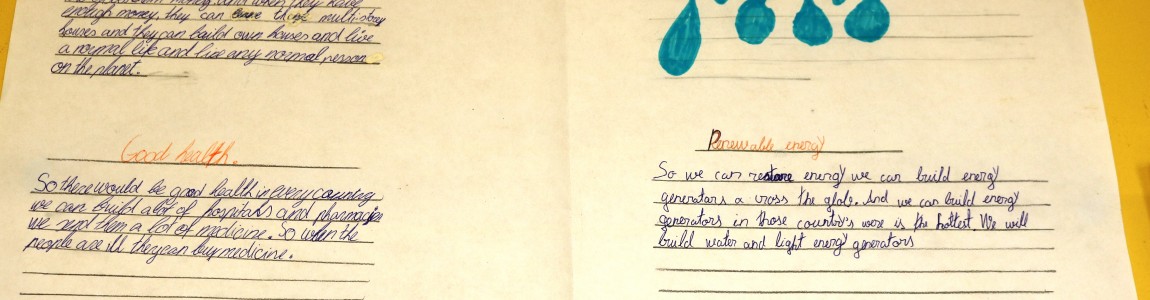 enough money, they can multi-story
houses and they can build own houses and live
a normal life and live any normal person
on the planet.
Good health.
So there would be good health in every country
we can build a lot of hospitals and pharmacies
we send them a lot of medicine. So when the
people are ill they can buy medicine.
Renewable energy
So we can restore energy we can build energy
generators a cross the globe. And we can build energy
generators in those country's were is the hottest. We will
build water and light energy generators